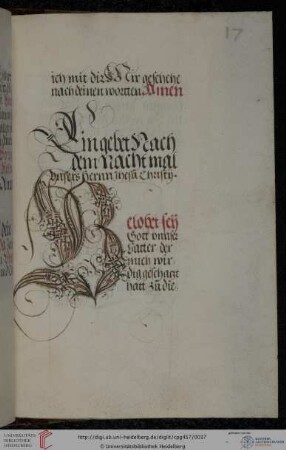 17
ich mit dir Mir geschehe
nach deinen wortten Amen
Ein gebet Nach
dem Nachtmal
vnsers Herrn Jhesu Christy.
Gelobet sey
Gott vnnser
Vatter der
mich wir-
dig geschatzt
hatt zu die
UNIVERSITÄTS-
BIBLIOTHEK
HEIDELBERG
http://digi.ub.uni-heidelberg.de/diglit/cpg457/0037
© Universitätsbibliothek Heidelberg